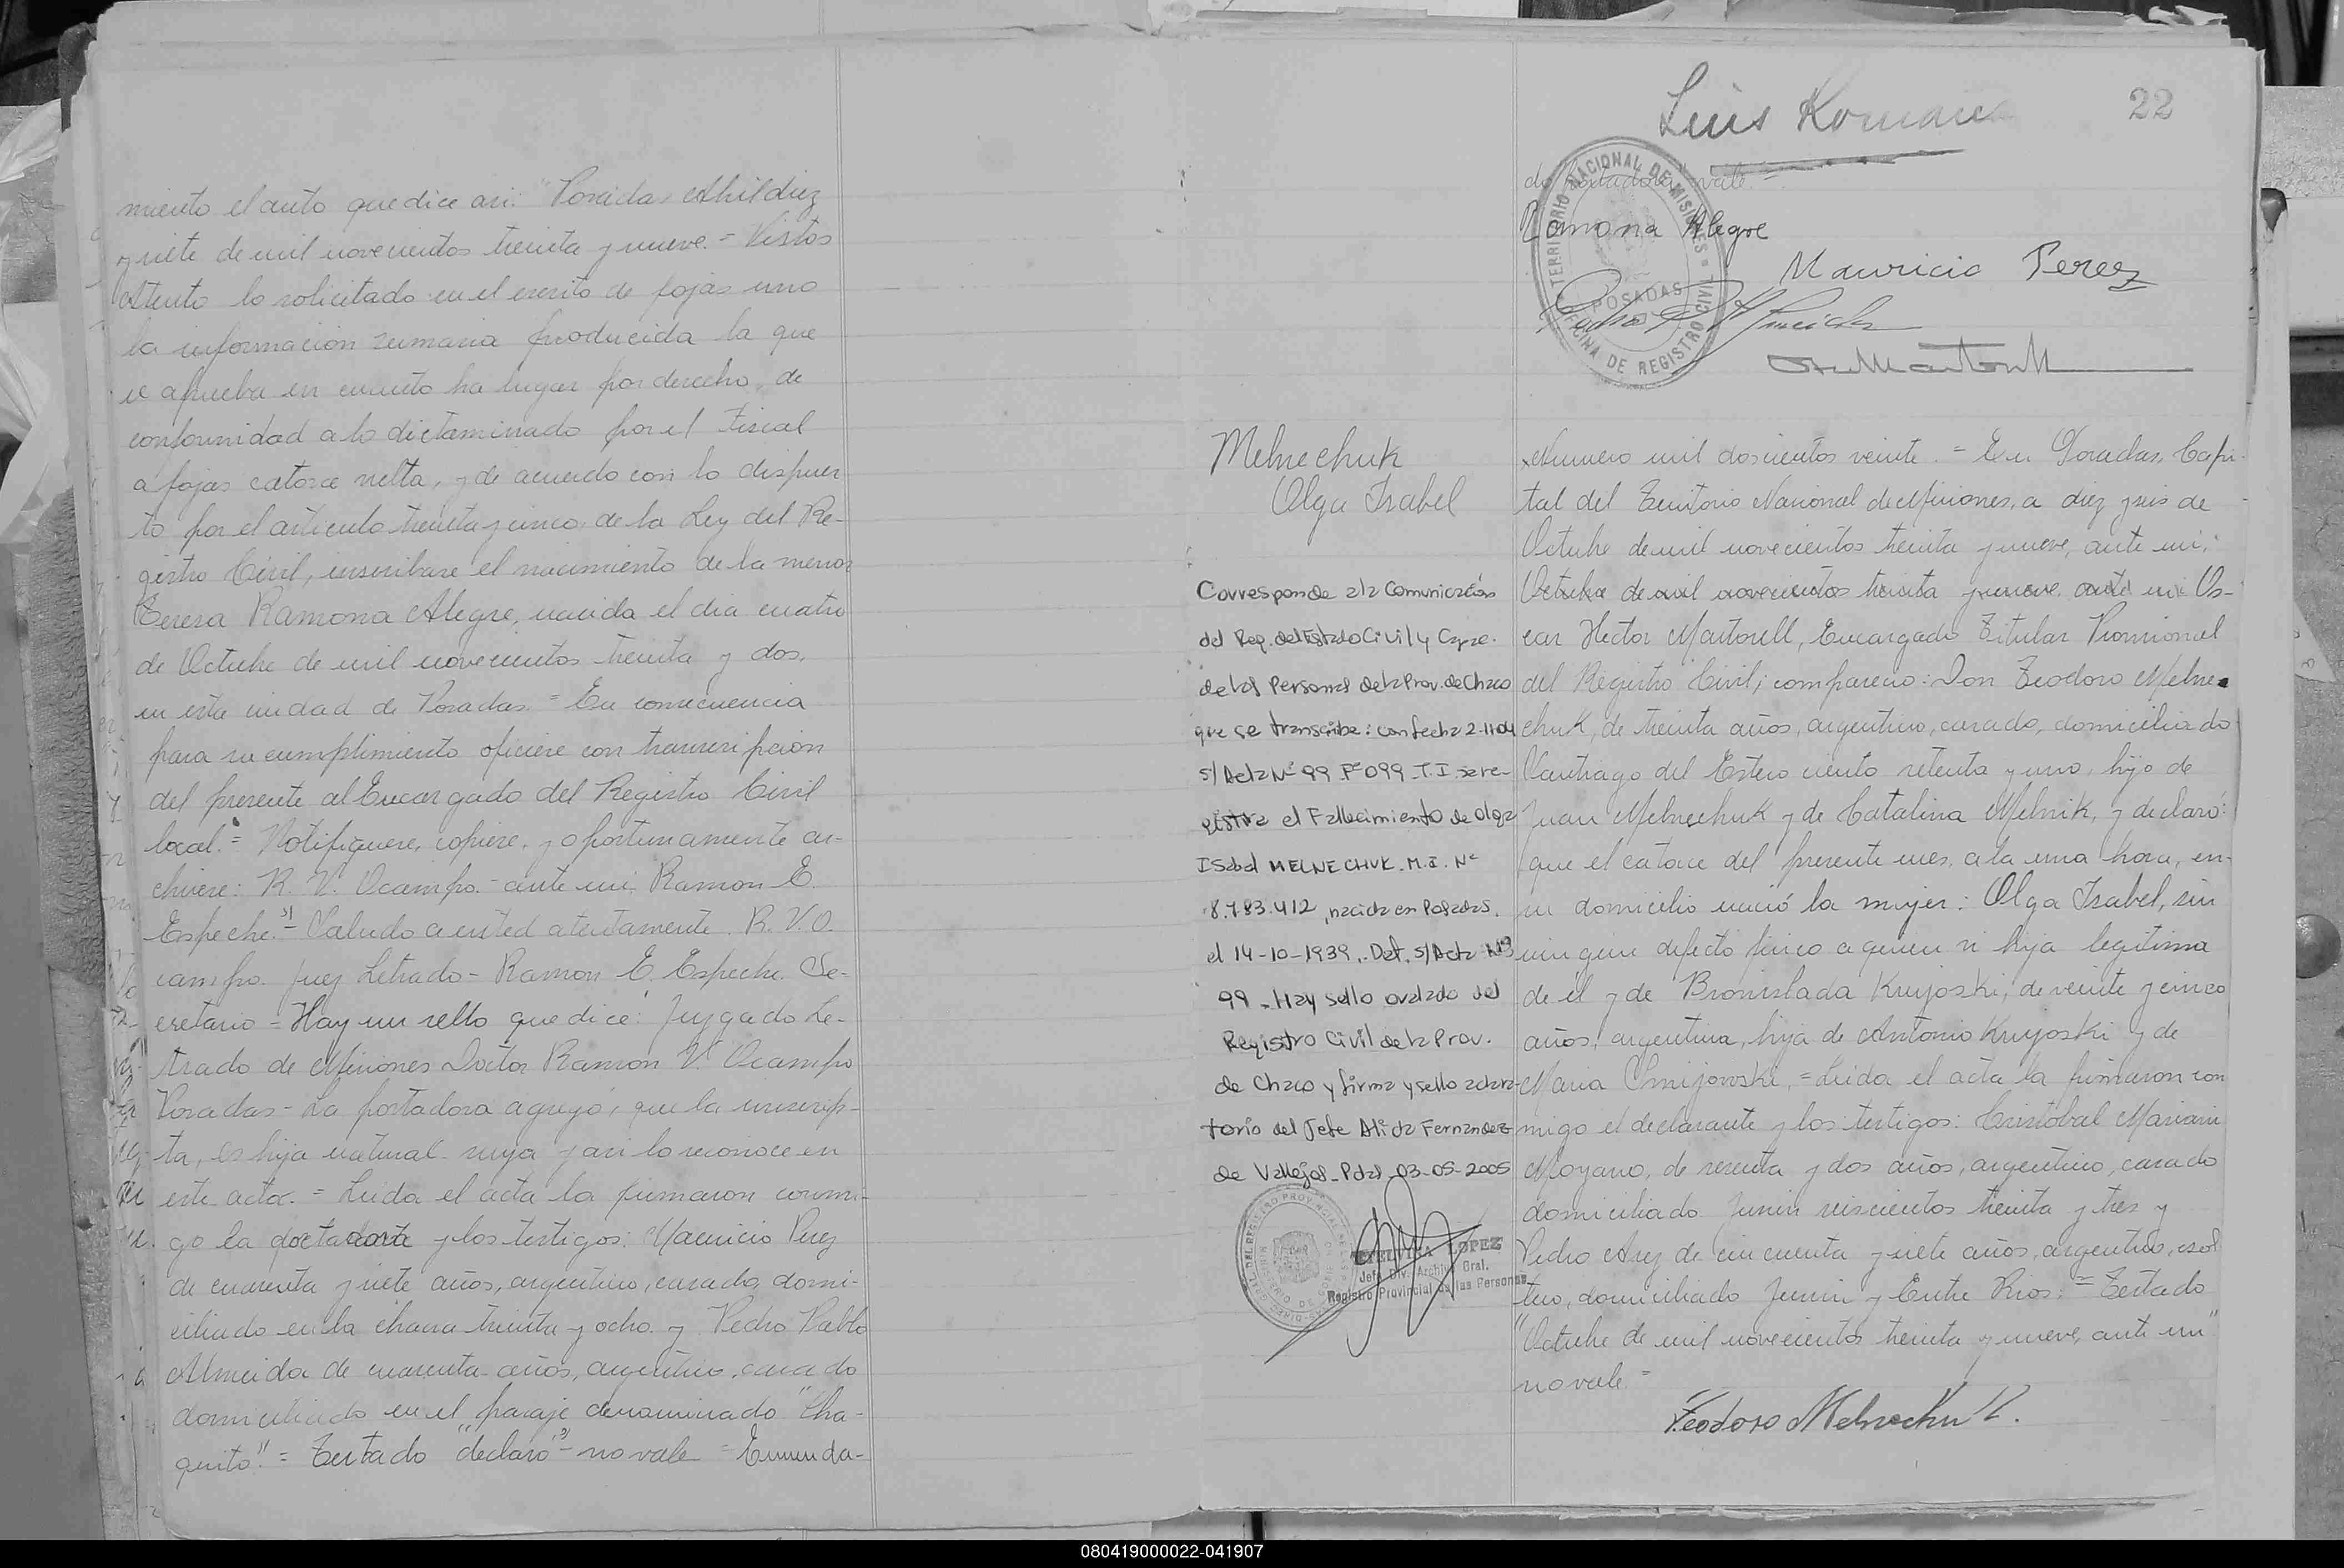 miento el auto que dice asi: "Posadas Abril diez
y siete de mil novecientos treinta y nueve. = Vistos
Atento lo solicitado en el escrito de fojas uno
la informacion sumaria producida la que
se aprueba en cuanto ha lugar por derecho, de
conformidad a lo dictaminado por el Fiscal
a fojas catorce vuelta, y de acuerdo con lo dispues-
to por el articulo treinta y cinco de la Ley del Re-
gistro Civil, inscribase el nacimiento de la menor
Teresa Ramona Alegre, nacida el dia cuatro
de Octubre de mil novecientos treinta y dos,
en esta ciudad de Posadas. = En consecuencia
para su cumplimiento oficiese con transcripcion
del presente al Encargado del Registro Civil
local. = Notifiquese, copiese, y oportunamente ar-
chivese: R. V. Ocampo. - ante mi, Ramon E.
Espeche." - Saludo a usted atentamente. R. V. O.
campo. Juez Letrado - Ramon E. Espeche. Se-
cretario = Hay un sello que dice: Juzgado Le-
trado de Misiones Doctor Ramon V. Ocampo
Posadas - La portadora agregó, que la inscrip-
ta, es hija natural suya y asi lo reconoce en
este acta. = Leida el acta la firmaron conmi-
go la portadora y los testigos: Mauricio Perez
de cuarenta y siete años, argentino, casado, domi-
ciliado en la chacra treinta y ocho y Pedro Pablo
Almeida de cuarenta años, argentino, casado
domiciliado en el paraje denominado "Cha-
quito" = Testado "declaro" - no vale = Enmenda-
Luis Roman
22
do portadora vale =
TERRITORIO NACIONAL DE MISIONES
POSADAS
OFICINA DE REGISTRO CIVIL
Ramona Alegre
Mauricio Perez
Pedro P Almeida
Melnechuk
Olga Isabel
Corresponde a la Comunicación
del Reg. del Estado Civil y Capac.
de las Personas de la Prov. de Chaco
que se transcribe: con fecha 2-11-04
s/Acta Nº 99 Fº 099 T. I se re-
gistra el Fallecimiento de Olga
Isabel MELNECHUK. M.I. Nº
8.783.412, nacida en Posadas.
el 14-10-1939.- Def. s/Acta Nº
99 - Hay sello ovalado del
Registro Civil de la Prov.
de Chaco y firma y sello aclara-
torio del Jefe Alida Fernandez
de Vallejos - Pdas. 03-05-2005
LOPEZ
Jefe Div. Archivo Gral.
Registro Provincial de las Personas
Numero mil doscientos veinte. = En Posadas, Capi-
tal del Territorio Nacional de Misiones, a diez y seis de
Octubre de mil novecientos treinta y nueve, ante mi,
Octubre de mil novecientos treinta y nueve ante mi Os-
car Hector Martorell, Encargado Titular Provisional
del Registro Civil; comparecio: Don Teodoro Melne-
chuk, de treinta años, argentino, casado, domiciliado
Santiago del Estero ciento setenta y uno, hijo de
Juan Melnechuk y de Catalina Melnik, y declaró:
que el catorce del presente mes, a la una hora, en
su domicilio nació la mujer: Olga Isabel, sin
ningun defecto fisico a quien vi hija legitima
de él y de Bronislada Krujoski, de veinte y cinco
años, argentina, hija de Antonio Krujoski y de
Maria Smijowski, = Leida el acta la firmaron con
migo el declarante y los testigos: Cristóbal Mariani
Moyano, de sesenta y dos años, argentino, casado
domiciliado Junin seiscientos treinta y tres y
Pedro Arez de cincuenta y siete años, argentino, sol
tero, domiciliado Junin y Entre Rios: = Testado
"Octubre de mil novecientos treinta y nueve, ante mi"
no vale. =
Teodoro Melnechuk.
080419000022-041907